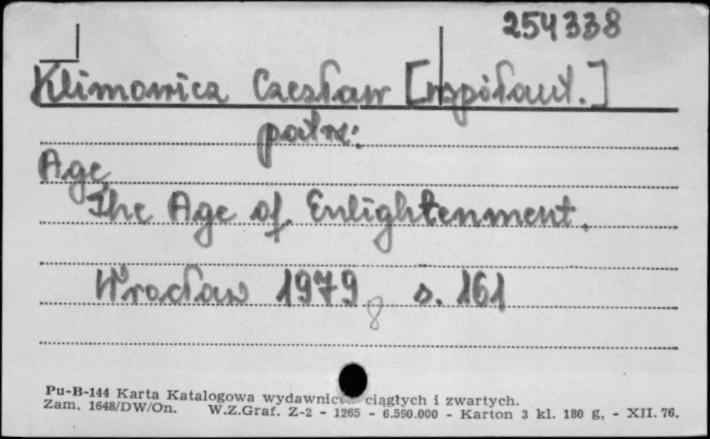 254338
Klimowicz Czesław [współaut.]
patrz:
Age
The Age of Enlightenment.
Wrocław 1979 s. 161
8
Pu-B-144 Karta Katalogowa wydawnictw ciągłych i zwartych.
Zam. 1648/DW/On. W.Z.Graf. Z-2 - 1265 - 6.590.000 - Karton 3 kl. 180 g. - XII. 76.